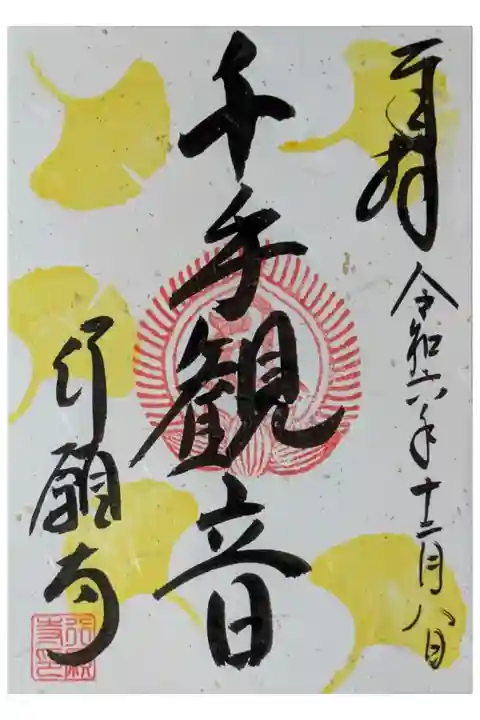 奉拝
令和六年十二月八日
千手観音
行願寺
行願寺印